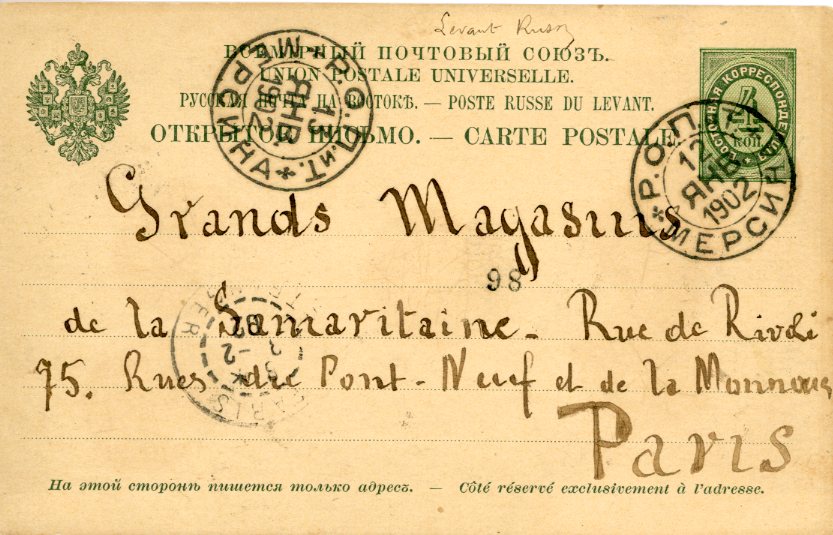 Levant Russe
ВСЕМІРНЫЙ ПОЧТОВЫЙ СОЮЗЪ.
UNION POSTALE UNIVERSELLE.
РУССКАЯ ПОЧТА НА ВОСТОКѢ. — POSTE RUSSE DU LEVANT.
ОТКРЫТОЕ ПИСЬМО. — CARTE POSTALE.
ВОСТОЧНАЯ КОРРЕСПОНДЕНЦІЯ
КОП
Р.О.П.иТ. МЕРСИНА
13
ЯНВ
1902
Р.О.П.
ЯНВ
1902
МЕРСИН
Grands Magasins
98
de la Samaritaine - Rue de Rivoli
75. Rues du Pont-Neuf et de la Monnaie
Paris
PARIS
ETRANGER
На этой сторонѣ пишется только адресъ. — Côté réservé exclusivement à l'adresse.